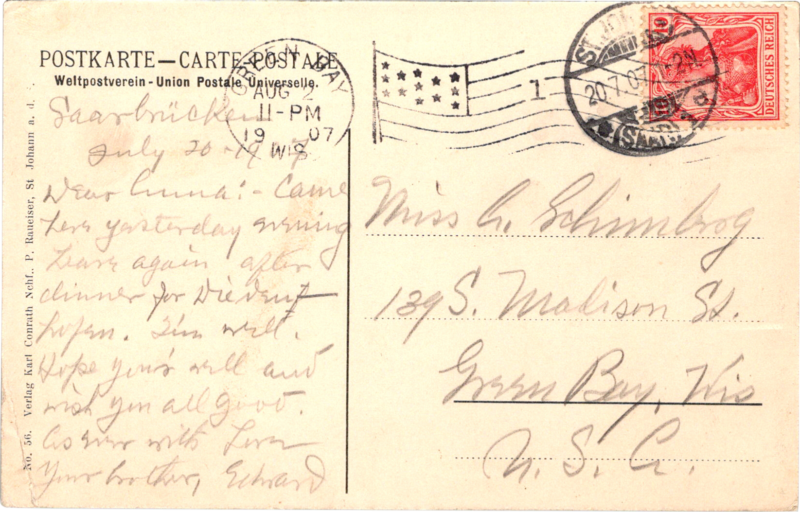 POSTKARTE — CARTE POSTALE
Weltpostverein - Union Postale Universelle.
GREEN BAY
AUG 2
11-PM
1907
WIS
1
ST. JOHANN
20.7.07
(SAAR)
10
DEUTSCHES REICH
Saarbrücken
July 20-1907
Dear Anna:- Came
here yesterday evening
Leave again after
dinner for Dieden-
hofen. I'm well.
Hope you's well and
wish you all good.
As ever with Love
Your brother, Edward
Miss A. Schimbrog
139 S. Madison St.
Green Bay, Wis
U. S. A.
No. 56. Verlag Karl Conrath Nchf., P. Raueiser, St Johann a. d.